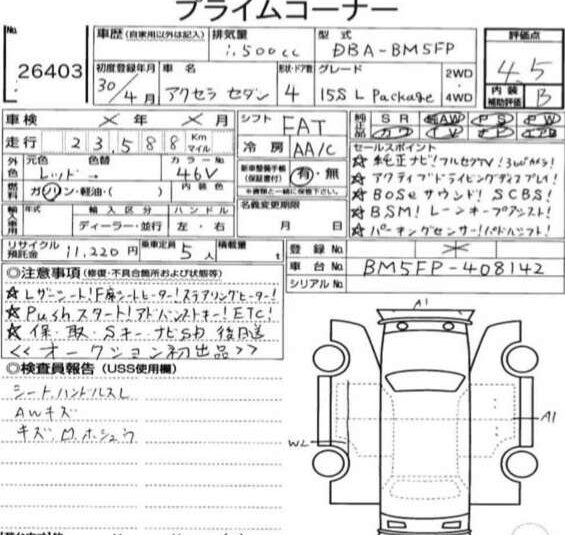 プライムコーナー
No. 26403
車歴 (自家用以外は記入) 排気量 1,500cc 型式 DBA-BM5FP 評価点 4.5
初度登録年月 30年/4月 車名 アクセラ セダン 形状・ドア数 4 グレード 15S L Package 2WD・4WD 内装補助評価 B
車検 × 年 × 月 シフト FAT 純正品 SR 純AW PS PW
走行 23,588 Km マイル 冷房 AA/C カワ TV ナビ エアB
外色 元色 レッド→ 色替 カラーNo. 46V 新車整備手帳(保証書付) 有・無
燃料 ガソリン・軽油・( ) 内装色 ※書類と一緒に保管下さい。
輸入車使用 年式 輸入区分 ディーラー・並行 ハンドル 左・右 名義変更期限 月 日
リサイクル預託金 11,220円 乗車定員 5人 積載量 t
セールスポイント
☆純正ナビ!フルセグTV!360°カメラ!
☆アクティブドライビングディスプレイ!
☆BOSEサウンド! SCBS!
☆BSM! レーンキープアシスト!
☆パーキングセンサー!パドルシフト!
登録No. ×
車台No. BM5FP-408142
シリアルNo.
◎注意事項 (修復・不具合箇所および状態等)
☆レザーシート!F席シートヒーター!ステアリングヒーター!
☆Pushスタート!アドバンストキー!ETC!
☆保・取・Sキー ナビSD 後日送
<<オークション初出品>>
◎検査員報告 (USS使用欄)
シート、ハンドルスレ
AWキズ
キズ、凹、ホシュウ
A1
A1
WL